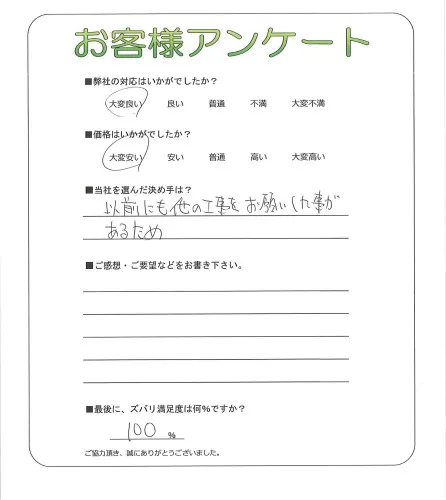 お客様アンケート
■弊社の対応はいかがでしたか？
大変良い 良い 普通 不満 大変不満
■価格はいかがでしたか？
大変安い 安い 普通 高い 大変高い
■当社を選んだ決め手は？
以前にも他の工事をお願いした事が
あるため
■ご感想・ご要望などをお書き下さい。
■最後に、ズバリ満足度は何%ですか？
100 %
ご協力頂き、誠にありがとうございました。